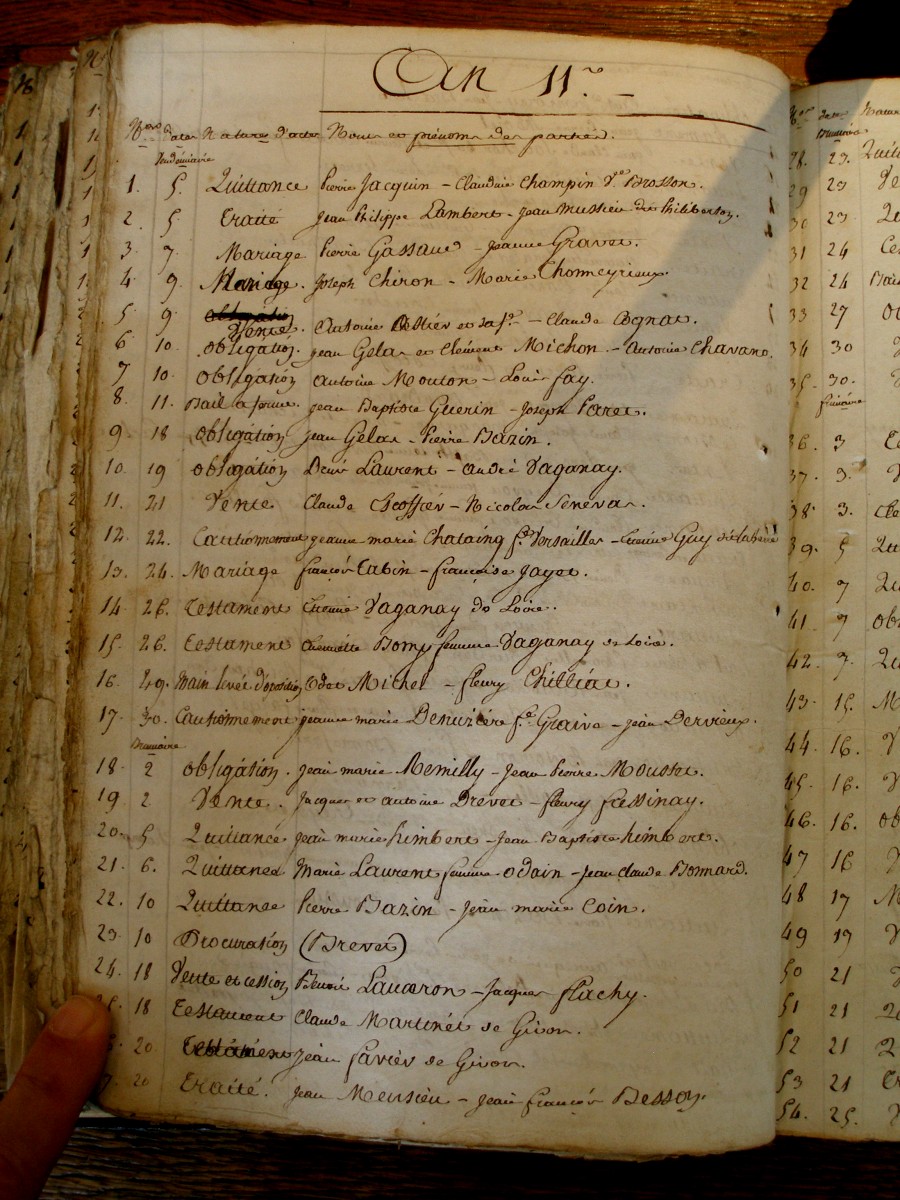 An 11.e
N.os Dates Natures d'actes Noms et prénoms des parties.
Vendémiaire
1. 5. Quittance Pierre Jacquin - Claudine Champin V.e Brosson.
2. 5 Traité Jean Philippe Lambert - Jean Mussieu dit Philiberson.
3. 7. Mariage Pierre Gassaud - Jeanne Gravet.
4. 9. Mariage. Joseph Chiron - Marie Chomeyrieux.
5. 9. Vente. Antoine et sa f.e - Claude Cognat.
6 10. obligation. Jean Gelas et Clément Michon - Antoine Chavano.
7 10. obligation Antoine Mouton - Louis fay.
8. 11. Bail à ferme. Jean Baptiste Guerin - Joseph Paret.
9. 18 obligation Jean Gelas - Pierre Bazin.
10. 19 obligation Denis Laurent - André Vaganay.
11. 21 Vente Claude - Nicolas Senevas.
12. 22. Cautionnement Jeanne marie Chataing f.e Versailles - Etienne Guy
13. 24. Mariage françois Tabin - françoise Jayet.
14 26. Testament Etienne Vaganay de Loire.
15. 26. Testament Bomy femme Vaganay de Loire.
16. 29. Main levée d'oposition Odet Michel - fleury Chilliat.
17. 30. Cautionnement Jeanne marie Denuzière f.e Graive - Jean Dervieux.
Brumaire
18. 2 obligation. Jean marie Remilly - Jean Pierre Mousset.
19. 2 Vente. Jacques et antoine Drevet - fleury fressinay.
20. 5 Quittance Jean marie himbert - Jean Baptiste himbert.
21. 6. Quittance Marie Laurent femme odain - Jean Claude Bonnard.
22. 10 Quittance Pierre Bazin - Jean marie Coin.
23. 10 Procuration (Brevet)
24. 18 Vente et cession Benoit Lauzeron - Jacques flachy.
18 Testament Claude Martinet de Givors.
20 Testament Jean favier de Givors.
20 Traité. Jean Meusieu - Jean françois Besson.
N.os Dates
Brumaire
28. 23. Quitt
29 23 Ve
30 23 Qu
31 24 Ce
32 24 Bai
33 27 ob
34 30
35. 30. V
frimaire
36. 3
37. 3. V
38. 3.
39. 5 Qu
40. 7 Qu
41 7 ob
42. 9. Qu
43. 15. M
44. 16. V
45. 16. V
46. 16. ob
47 16 V
48 17 M
49 19 V
50 21
51 21
52 21 Q
53 21 Tr
54. 25. V